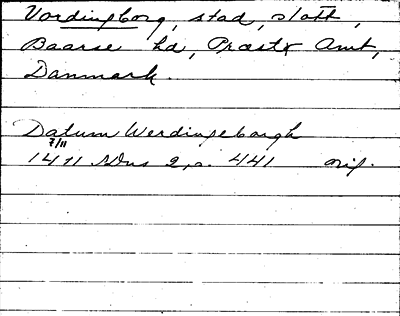 Vordingborg, stad, slott,
Baarse hd, Præstø Amt,
Danmark.
Datum Werdingeborgh
7/11
1411 SDns 2, s. 441 orig.